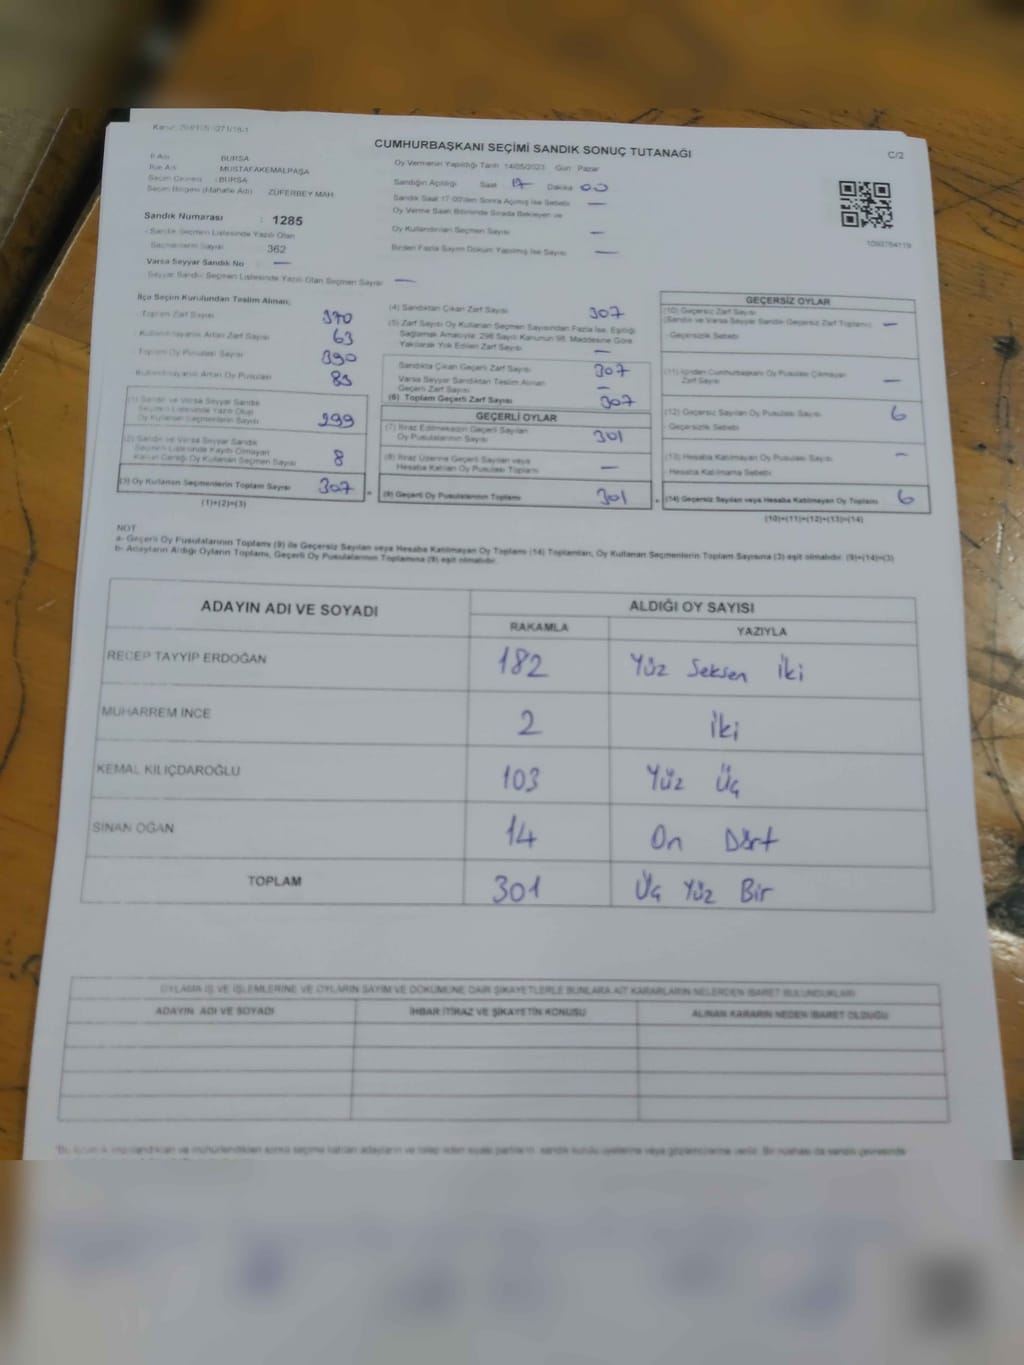 CUMHURBAŞKANI SEÇİMİ SANDIK SONUÇ TUTANAĞI
C/2
İl Adı : BURSA
İlçe Adı : MUSTAFAKEMALPAŞA
Seçim Çevresi : BURSA
Seçim Bölgesi (Mahalle Adı) ZÜFERBEY MAH.
Sandık Numarası : 1285
Sandık Seçmen Listesinde Yazılı Olan
Seçmenlerin Sayısı 362
Varsa Seyyar Sandık No —
Seyyar Sandık Seçmen Listesinde Yazılı Olan Seçmen Sayısı —
Oy Vermenin Yapıldığı Tarih 14/05/2023 Gün Pazar
Sandığın Açıldığı Saat 17 Dakika 00
Sandık Saat 17:00'den Sonra Açılmış İse Sebebi —
Oy Verme Saati Bitiminde Sırada Bekleyen ve
Oy Kullandırılan Seçmen Sayısı —
Birden Fazla Sayım Döküm Yapılmış İse Sayısı —
1093764119
İlçe Seçim Kurulundan Teslim Alınan;
- Toplam Zarf Sayısı 370
- Kullanılmayarak Artan Zarf Sayısı 63
- Toplam Oy Pusulası Sayısı 390
- Kullanılmayarak Artan Oy Pusulası 83
(1) Sandık ve Varsa Seyyar Sandık
Seçmen Listesinde Yazılı Olup
Oy Kullanan Seçmenlerin Sayısı 299
(2) Sandık ve Varsa Seyyar Sandık
Seçmen Listesinde Kayıtlı Olmayan
Kanun Gereği Oy Kullanan Seçmen Sayısı 8
(3) Oy Kullanan Seçmenlerin Toplam Sayısı 307
(1)+(2)=(3)
(4) Sandıktan Çıkan Zarf Sayısı 307
(5) Zarf Sayısı Oy Kullanan Seçmen Sayısından Fazla İse, Eşitliği
Sağlamak Amacıyla; 298 Sayılı Kanunun 98. Maddesine Göre
Yakılarak Yok Edilen Zarf Sayısı —
Sandıkta Çıkan Geçerli Zarf Sayısı 307
Varsa Seyyar Sandıktan Teslim Alınan
Geçerli Zarf Sayısı —
(6) Toplam Geçerli Zarf Sayısı 307
GEÇERLİ OYLAR
(7) İtiraz Edilmeksizin Geçerli Sayılan
Oy Pusulalarının Sayısı 301
(8) İtiraz Üzerine Geçerli Sayılan veya
Hesaba Katılan Oy Pusulası Toplamı —
(9) Geçerli Oy Pusulalarının Toplamı 301
GEÇERSİZ OYLAR
(10) Geçersiz Zarf Sayısı
(Sandık ve Varsa Seyyar Sandık Geçersiz Zarf Toplamı) —
- Geçersizlik Sebebi
(11) İçinden Cumhurbaşkanı Oy Pusulası Çıkmayan
Zarf Sayısı —
(12) Geçersiz Sayılan Oy Pusulası Sayısı 6
- Geçersizlik Sebebi
(13) Hesaba Katılmayan Oy Pusulası Sayısı —
- Hesaba Katılmama Sebebi
(14) Geçersiz Sayılan veya Hesaba Katılmayan Oy Toplamı 6
(10)+(11)+(12)+(13)=(14)
NOT
a- Geçerli Oy Pusulalarının Toplamı (9) ile Geçersiz Sayılan veya Hesaba Katılmayan Oy Toplamı (14) Toplamları, Oy Kullanan Seçmenlerin Toplam Sayısına (3) eşit olmalıdır. (9)+(14)=(3)
b- Adayların Aldığı Oyların Toplamı, Geçerli Oy Pusulalarının Toplamına (9) eşit olmalıdır.
ADAYIN ADI VE SOYADI ALDIĞI OY SAYISI
RAKAMLA YAZIYLA
RECEP TAYYİP ERDOĞAN 182 Yüz Seksen İki
MUHARREM İNCE 2 İki
KEMAL KILIÇDAROĞLU 103 Yüz Üç
SİNAN OĞAN 14 On Dört
TOPLAM 301 Üç Yüz Bir
OYLAMA İŞ VE İŞLEMLERİNE VE OYLARIN SAYIM VE DÖKÜMÜNE DAİR ŞİKAYETLERLE BUNLARA AİT KARARLARIN NELERDEN İBARET BULUNDUKLARI
ADAYIN ADI VE SOYADI İHBAR İTİRAZ VE ŞİKAYETİN KONUSU ALINAN KARARIN NEDEN İBARET OLDUĞU